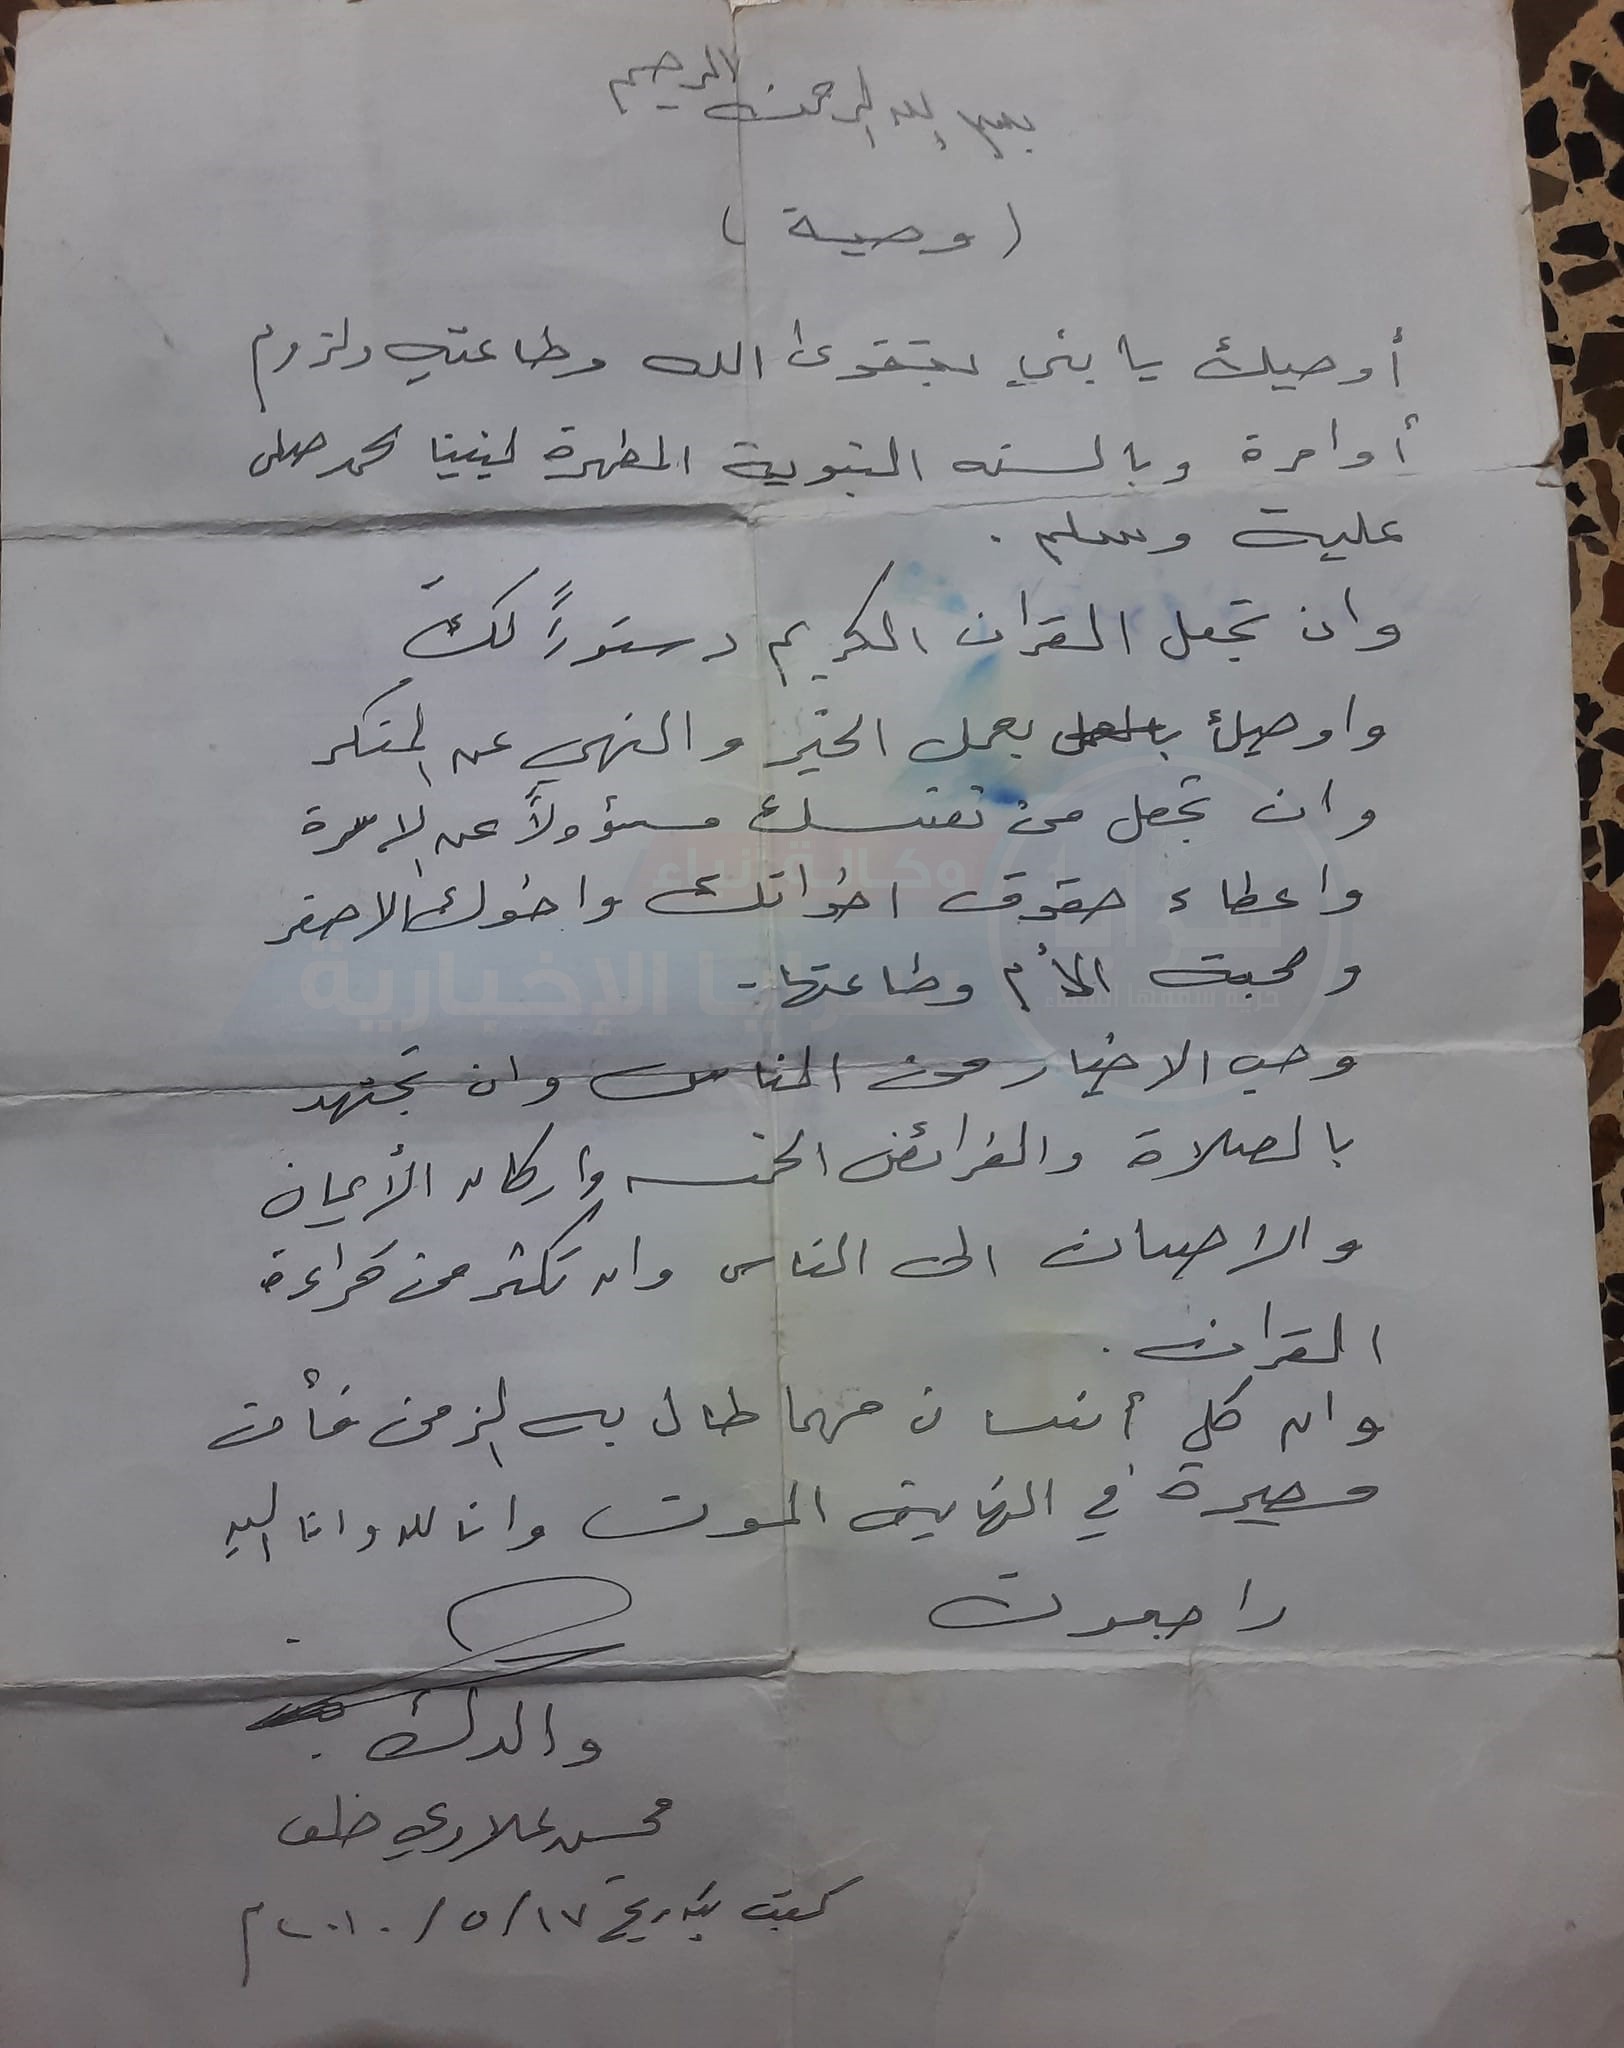 بسم الله الرحمن الرحيم
( وصية )
أوصيك يا بني بتقوى الله وطاعته ولزوم
أوامرة وبالسنه النبوية المطهرة لنبينا محمد صلى
علية وسلم .
وان تجعل القران الكريم دستوراً لكَ
واوصيك بعمل الخير والنهي عن المنكر
وان تجعل من نفسك مسؤولاً عن الاسرة
واعطاء حقوق اخواتك واخوك الاصغر
ومحبة الأم وطاعتها -
وحب الاخيار من الناس وان تجتهد
بالصلاة والفرائض الخمسه واركان الأيمان
والاحسان الى الناس وان تكثر من قراءة
القران .
وان كل أنسان مهما طال به الزمن فأن
مصيرة في النهاية الموت وانا لله وانا اليه
راجعون
والدك
محسن علاوي خلف
كتبت بتاريخ ١٧ / ٥ / ٢٠١٠ م
وكالة أنباء
سرايا الإخبارية
سرايا
حرية سقفها السماء